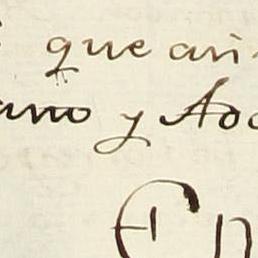 que ari
ano y Ado
En